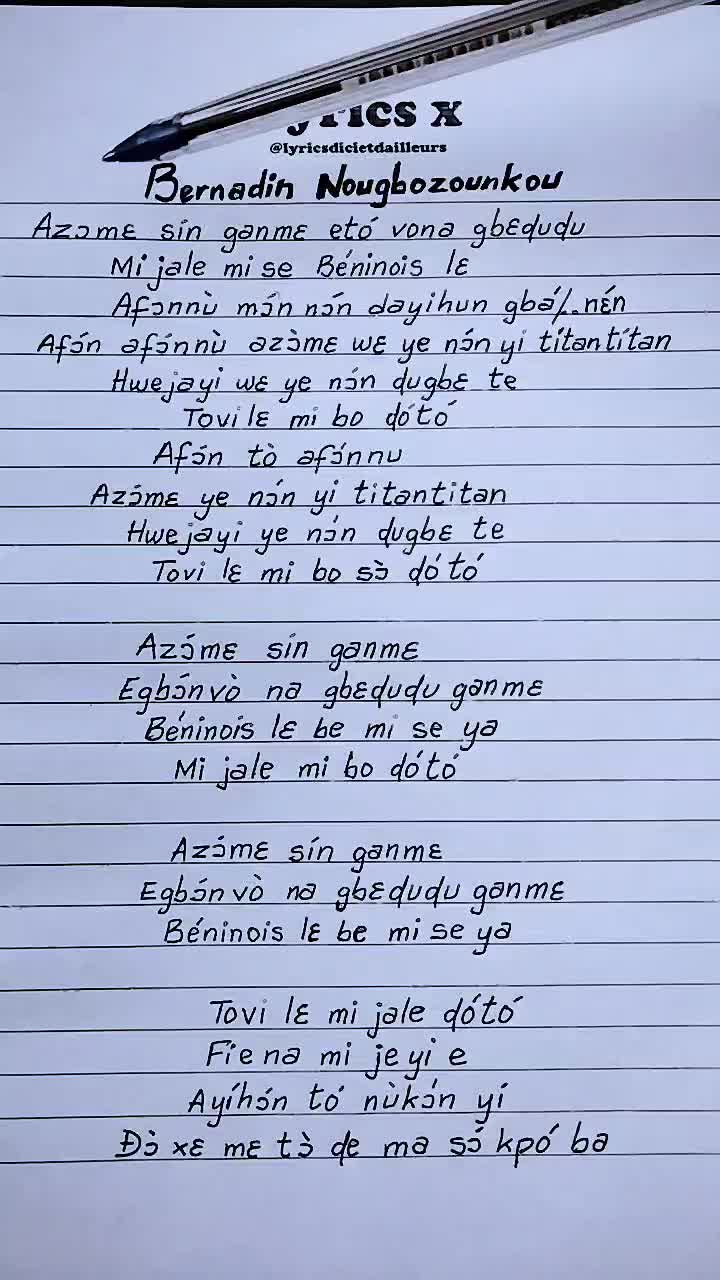 yrics x
@lyricsdicietdailleurs
Bernadin Nougbozounkou
Azɔmɛ sín ganmɛ etó vona gbɛdudu
Mi jale mi se Béninois lɛ
Afɔnnù mɔ́n nɔ́n dayihun gbá/.nɛ́n
Afɔ́n afɔ́nnù azɔ̀mɛ wɛ ye nɔ́n yi títantítan
Hwejayi wɛ ye nɔ́n dugbɛ te
Tovi lɛ mi bo dótó
Afɔ́n tò afɔ́nnu
Azɔ́mɛ ye nɔ́n yi titantitan
Hwejayi ye nɔ́n dugbɛ te
Tovi lɛ mi bo sɔ̀ dótó
Azɔ́mɛ sín ganmɛ
Egbɔ́nvò na gbɛdudu ganmɛ
Béninois lɛ be mi se ya
Mi jale mi bo dótó
Azɔ́mɛ sín ganmɛ
Egbɔ́nvò na gbɛdudu ganmɛ
Béninois lɛ be mi se ya
Tovi lɛ mi jale dótó
Fíe na mi jeyi e
Ayíhɔ́n tó nùkɔ́n yí
Ɖɔ̀ xɛ mɛ tɔ̀ ɖe ma sɔ́ kpó ba